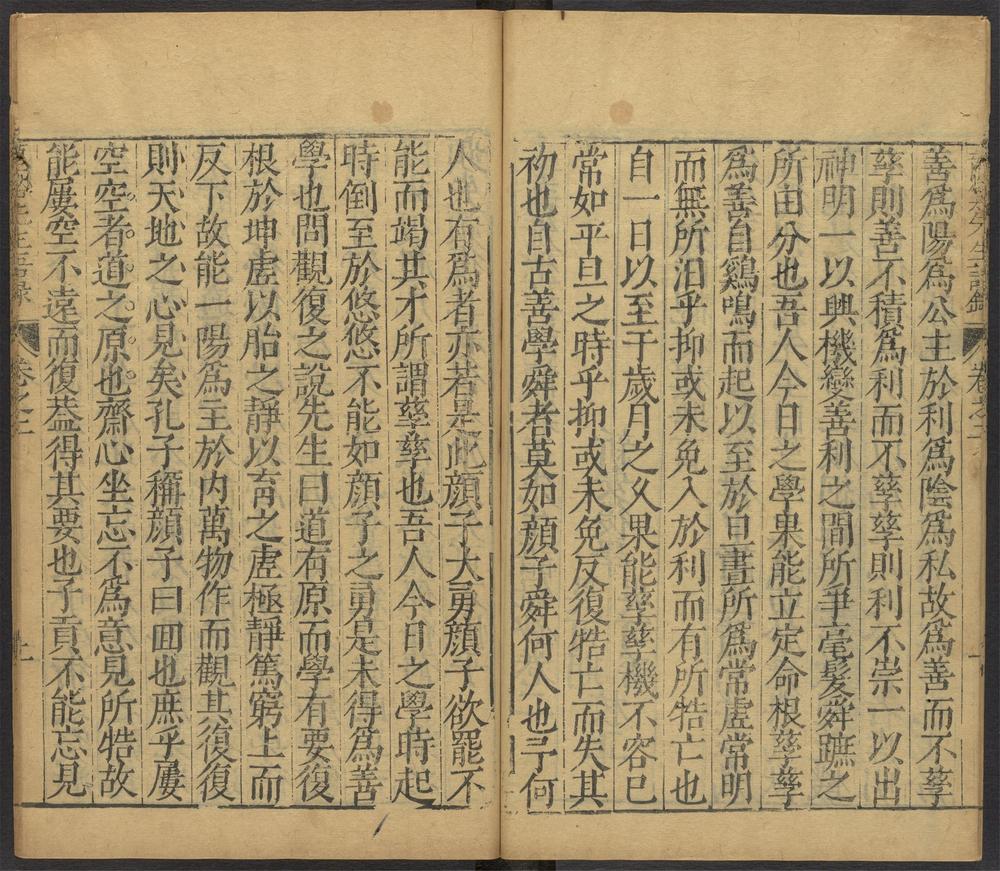 善爲陽爲公主於利爲陰爲私故爲善而不孳
孳則善不積爲利而不孳孳則利不崇一以出
神明一以興機變善利之間所爭毫髮舜蹠之
所由分也吾人今日之學果能立定命根孳孳
爲善自鷄鳴而起以至於旦晝所爲常虛常明
而無所汨乎抑或未免入於利而有所牿亡也
自一日以至于歲月之久果能孳孳機不容已
常如平旦之時乎抑或未免反復牿亡而失其
初也自古善學舜者莫如顔子舜何人也予何
人也有爲者亦若是此顔子大勇顔子欲罷不
能而竭其才所謂孳孳也吾人今日之學時起
時倒至於悠悠不能如顔子之勇是未得爲善
學也問觀復之說先生曰道有原而學有要復
根於坤虛以胎之靜以育之虛極靜篤窮上而
反下故能一陽爲主於內萬物作而觀其復復
則天地之心見矣孔子稱顔子曰回也庶乎屢
空空者道之原也齋心坐忘不爲意見所牿故
能屢空不遠而復葢得其要也子貢不能忘見
卷之二